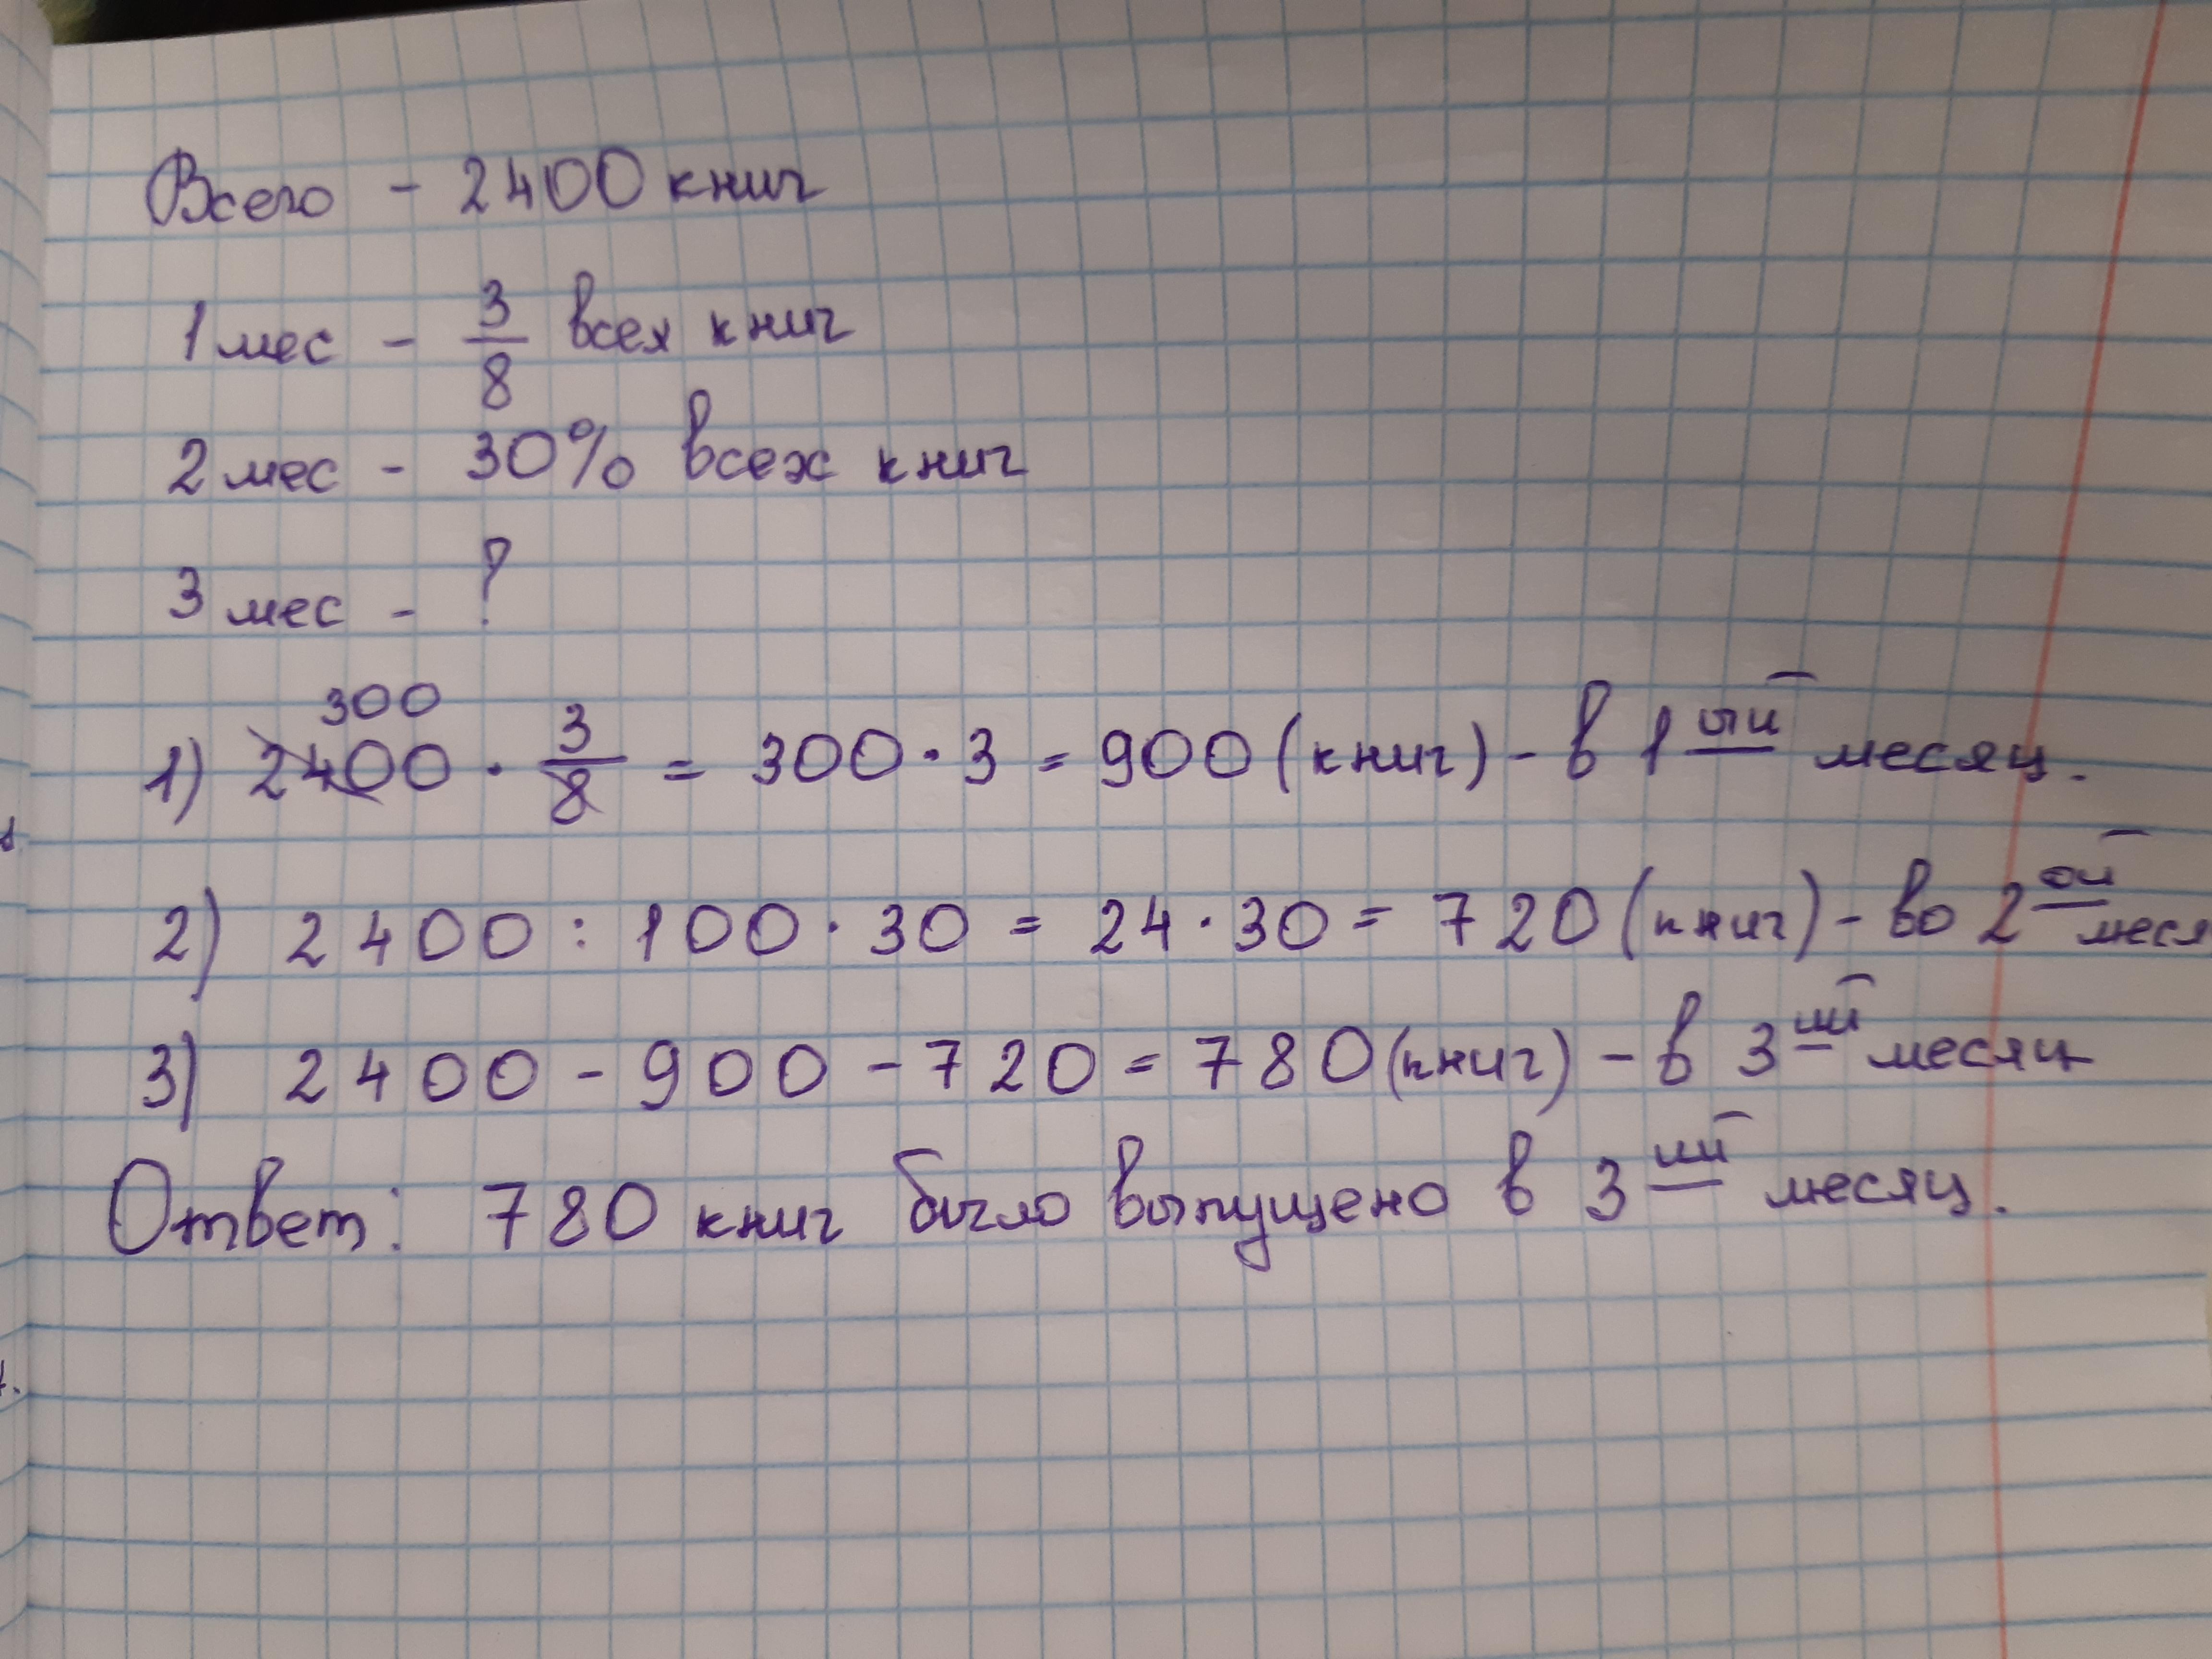 Всего - 2400 книг
1 мес - 3/8 всех книг
2 мес - 30% всех книг
3 мес - ?
300
1) 2400 · 3/8 = 300 · 3 = 900 (книг) - в 1ый месяц.
2) 2400 : 100 · 30 = 24 · 30 = 720 (книг) - во 2ой меся
3) 2400 - 900 - 720 = 780 (книг) - в 3ий месяц
Ответ: 780 книг было выпущено в 3ий месяц.